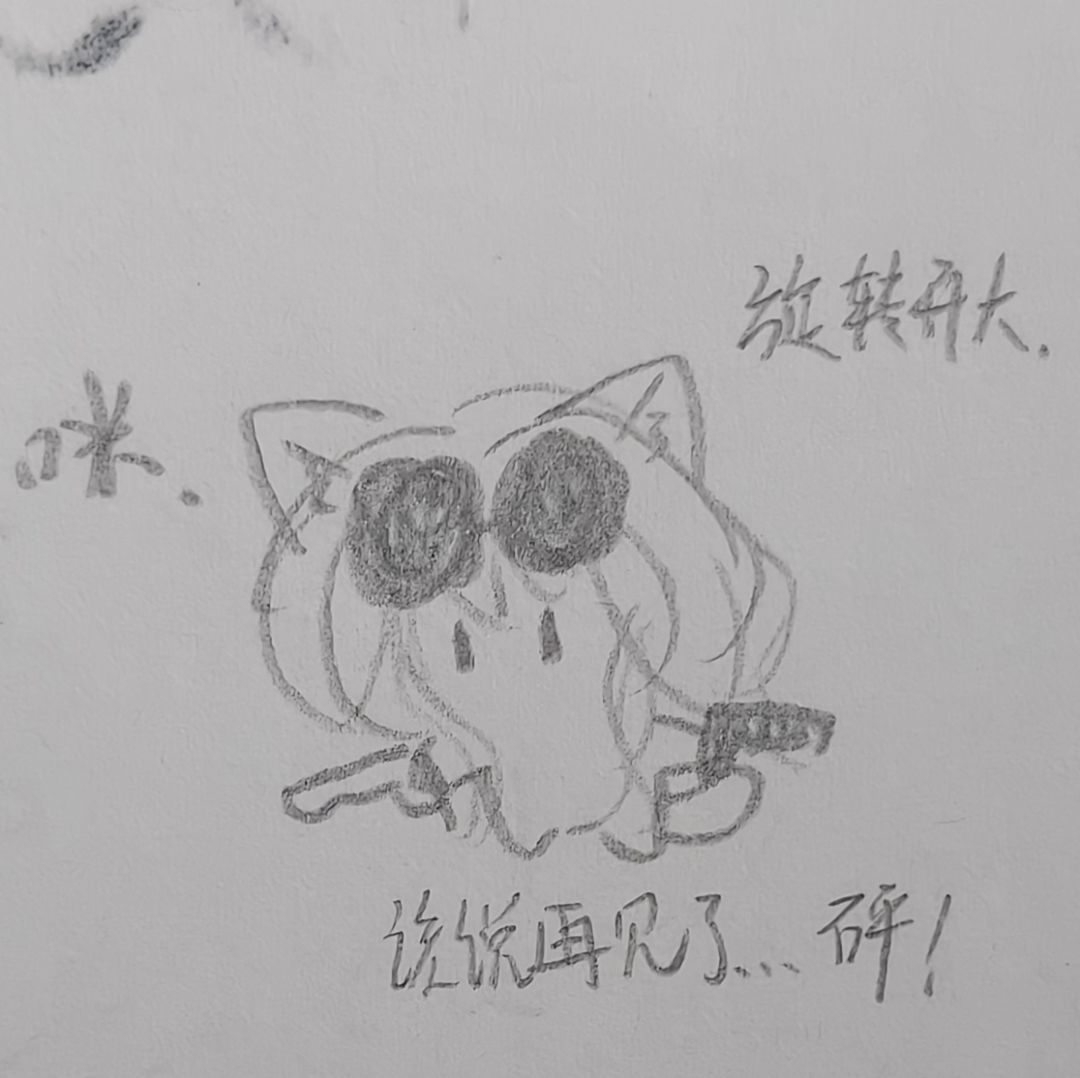 旋转开大.
咪.
该说再见了... 砰!